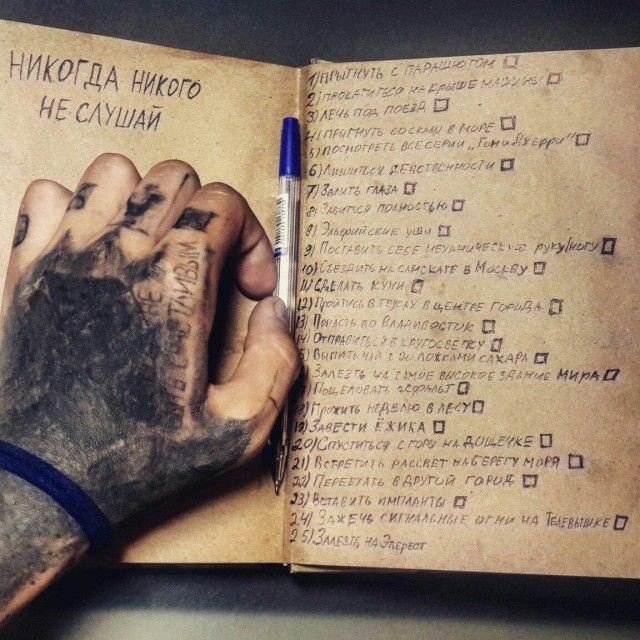 НИКОГДА НИКОГО
НЕ СЛУШАЙ
1) ПРЫГНУТЬ С ПАРАШЮТОМ
2) ПРОКАТИТЬСЯ НА КРЫШЕ МАШИНЫ
3) ЛЕЧЬ ПОД ПОЕЗД
4) ПРЫГНУТЬ СО СКАЛЫ В МОРЕ
5) ПОСМОТРЕТЬ ВСЕ СЕРИИ „Том и Джерри"
6) ЛИШИТЬСЯ ДЕВСТВЕННОСТИ
7) ЗАЛИТЬ ГЛАЗА
8) ЗАБИТЬСЯ ПОЛНОСТЬЮ
8) ЭЛЬФИЙСКИЕ УШИ
9) ПОСТАВИТЬ СЕБЕ МЕХАНИЧЕСКУЮ РУКУ/НОГУ
10) СЪЕЗДИТЬ НА СЛИСКАТЕ В МОСКВУ
11) СДЕЛАТЬ КУНИ
12) ПРОЙТИСЬ В ТРУСАХ В ЦЕНТРЕ ГОРОДА
13) ПОПАСТЬ ВО ВЛАДИВОСТОК
14) ОТПРАВИТЬСЯ В КРУГОСВЕТКУ
15) ВЫПИТЬ ЧАЙ С 20 ЛОЖКАМИ САХАРА
ЗАЛЕЗТЬ НА САМОЕ ВЫСОКОЕ ЗДАНИЕ МИРА
ПОЦЕЛОВАТЬ АСФАЛЬТ
18) ПРОЖИТЬ НЕДЕЛЮ В ЛЕСУ
19) ЗАВЕСТИ ЁЖИКА
20) СПУСТИТЬСЯ С ГОРЫ НА ДОЩЕЧКЕ
21) ВСТРЕТИТЬ РАССВЕТ НА БЕРЕГУ МОРЯ
22) ПЕРЕЕХАТЬ В ДРУГОЙ ГОРОД
23) ВСТАВИТЬ ИМПЛАНТЫ
24) ЗАЖЕЧЬ СИГНАЛЬНЫЕ ОГНИ НА ТЕЛЕВЫШКЕ
25) ЗАЛЕЗТЬ НА ЭВЕРЕСТ